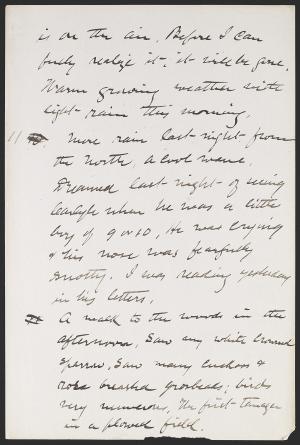 is on the air. Before I can
fully realize it, it will be gone.
Warm growing weather with
light rain this morning.
11 More rain last night from
the North, a cool wave.
Dreamed last night of seeing
Carlyle when he was a little
boy of 9 or 10. He was crying
& his nose was fearfully
snotty. I was reading yesterday
in his letters.
A walk to the woods in the
afternoon, Saw any white crowned
sparrow, Saw many cuckoos &
rose breasted grosbeaks; birds
very numerous. The first tanager
in a plowed field.